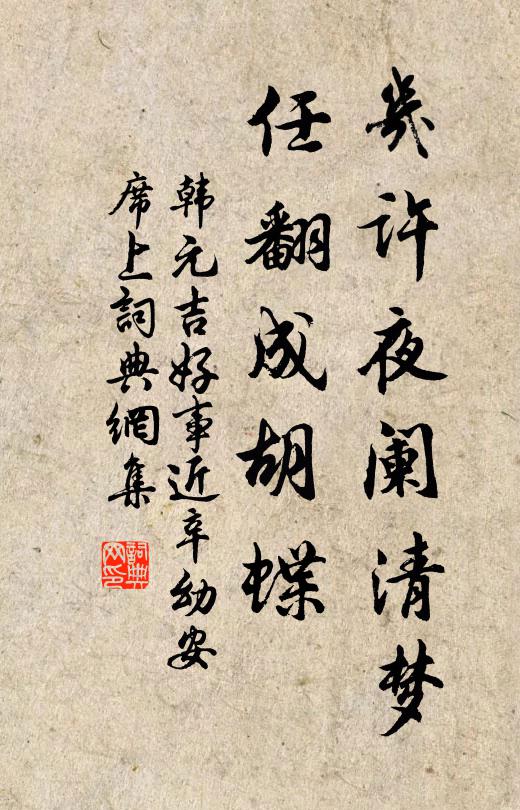 幾许夜阑清梦
任翻成胡蝶
韩元吉好事近辛幼安
席上詞典網集
詞典
网印